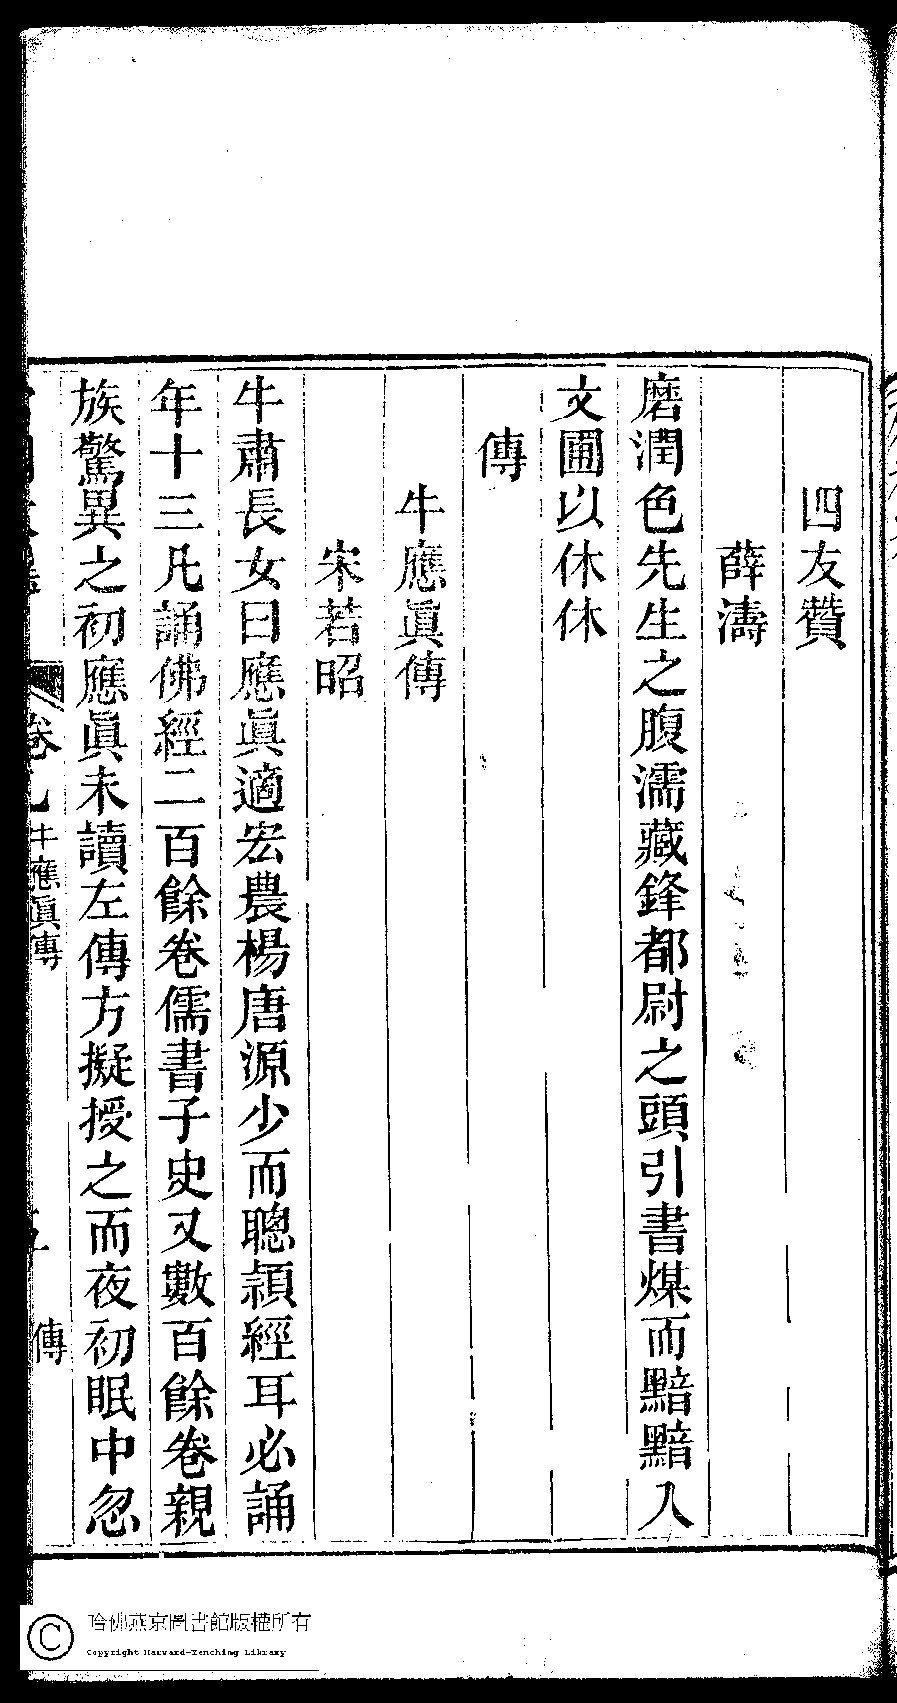 四友贊
薛濤
磨潤色先生之腹濡藏鋒都尉之頭引書煤而黯黯入
文圃以休休
傳
牛應眞傳
宋若昭
牛肅長女曰應眞適宏農楊唐源少而聰頴經耳必誦
年十三凡誦佛經二百餘卷儒書子史又數百餘卷親
族驚異之初應眞未讀左傳方擬授之而夜初眠中忽
卷九 牛應眞傳 傳
哈佛燕京圖書館版權所有
Copyright Harvard-Yenching Library